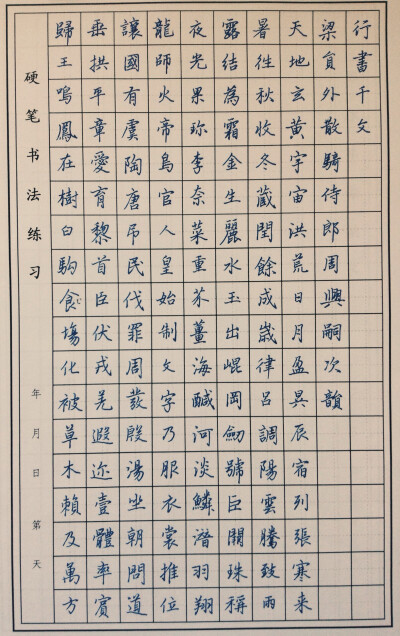 行書千文
梁貟外散騎侍郎周興嗣次韻
天地玄黃宇宙洪荒日月盈昃辰宿列張寒来
暑往秋收冬蔵閏餘成歲律呂調陽雲騰致雨
露結為霜金生麗水玉出崐岡劒號巨闕珠稱
夜光果珎李柰菜重芥薑海鹹河淡鱗潛羽翔
龍師火帝鳥官人皇始制文字乃服衣裳推位
讓國有虞陶唐吊民伐罪周發殷湯坐朝問道
垂拱平章愛育黎首臣伏戎羌遐迩壹體率賓
歸王鳴鳳在樹白駒食場化被草木賴及萬方
硬笔书法练习 年 月 日 第 天